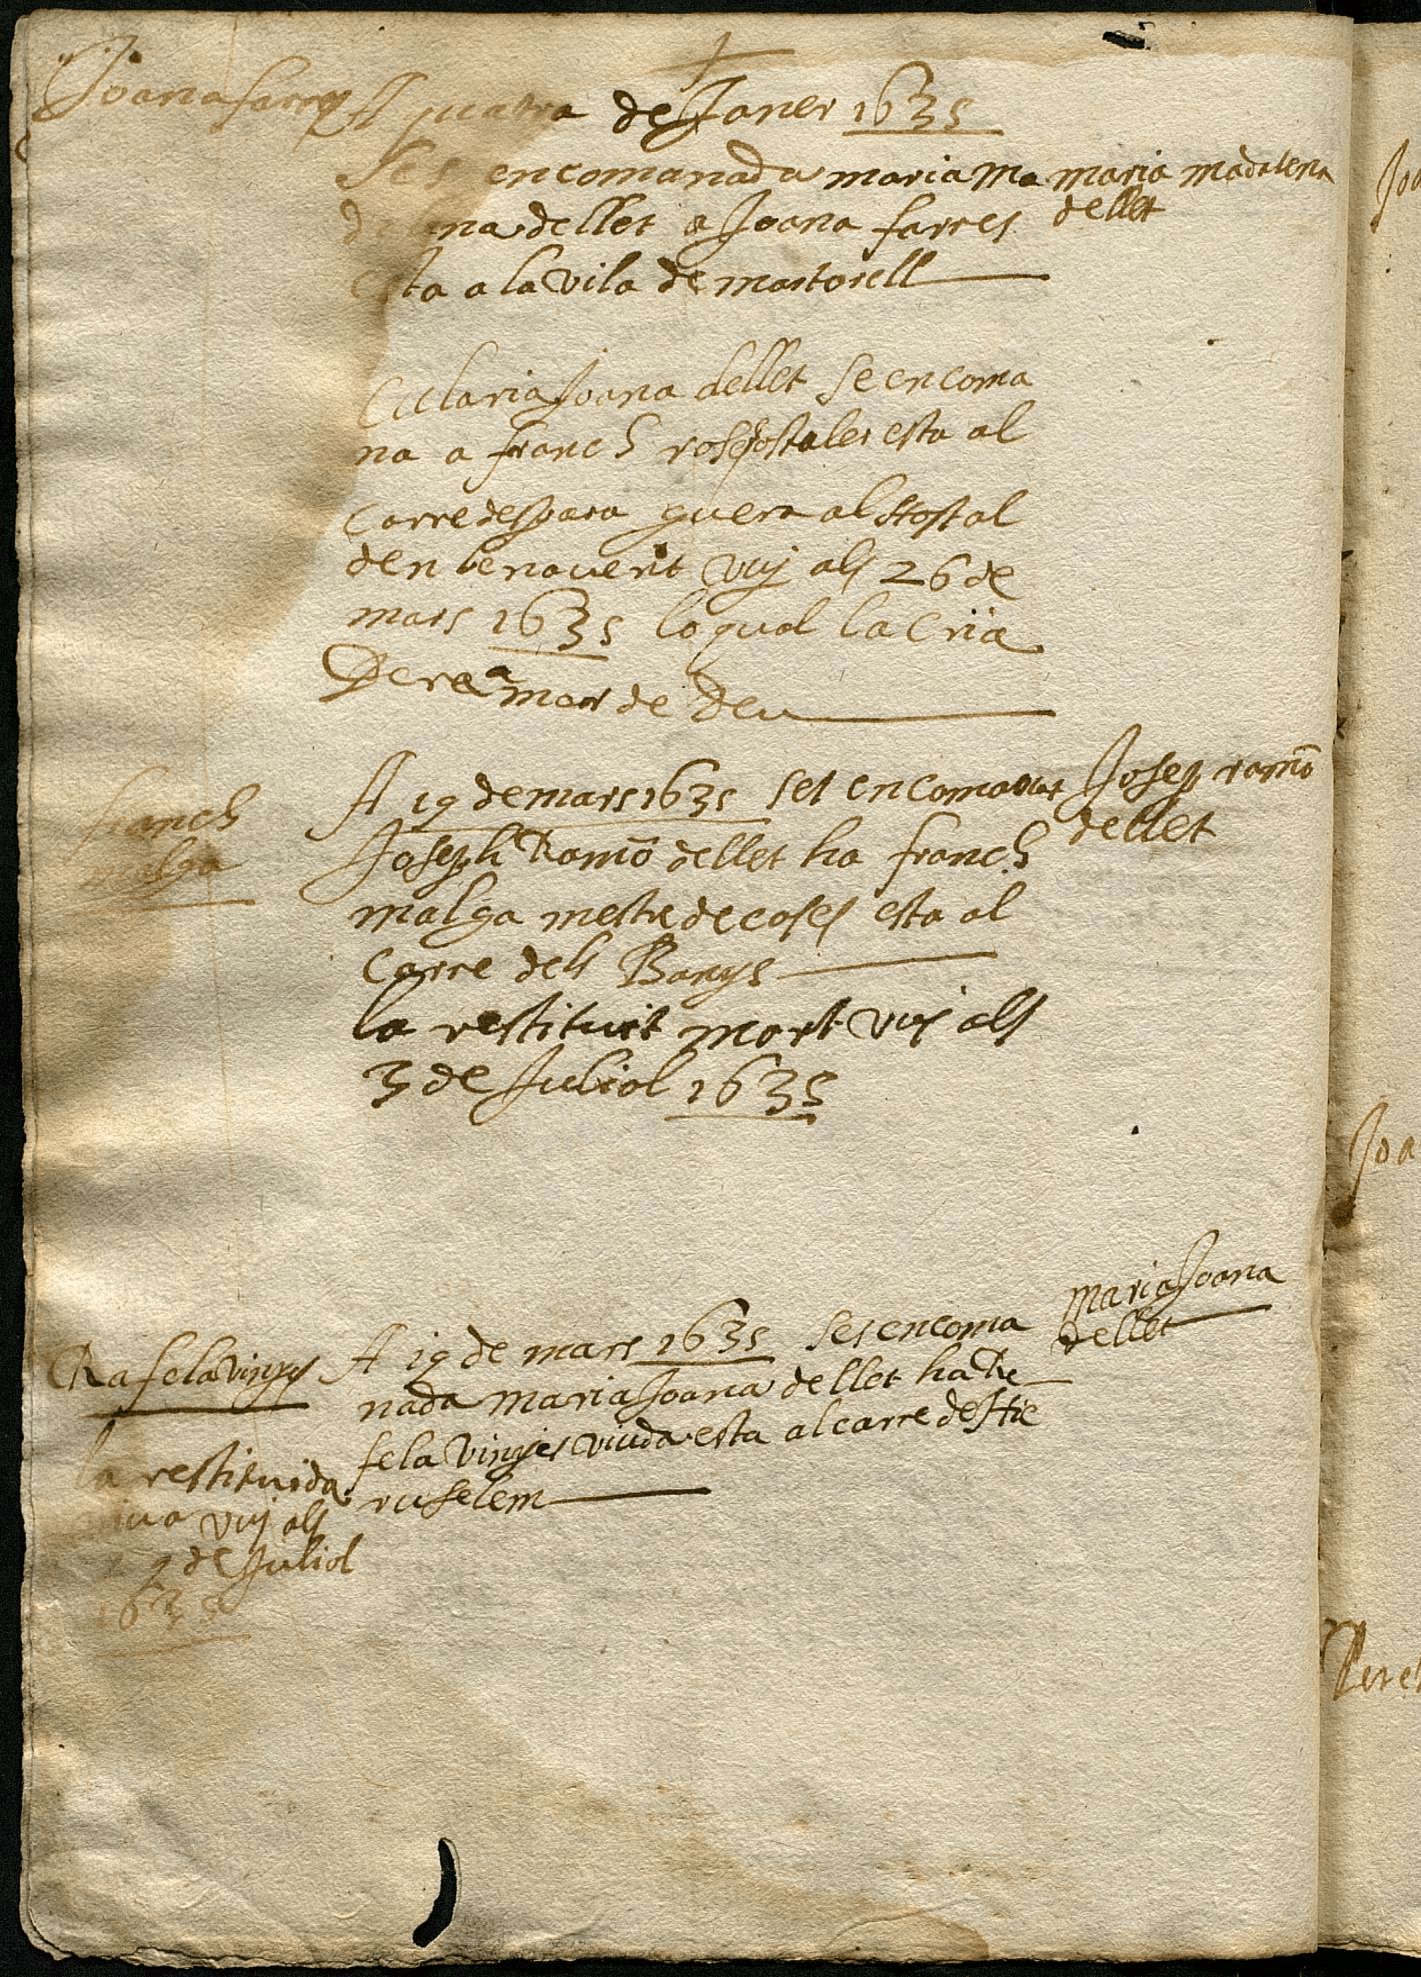 Joana farres
A quatra de Janer 1635
Ses encomanada maria ma
dalena dellet a Joana farres
esta a la vila de martorell
maria madalena
dellet
Eularia Joana dellet se encoma
na a franch ros hostaler esta al
carre des para guera al Hostal
den benauent vuj als 26 de
mars 1635 lo qual la cria
Dera mar de Deu
franch
malga
A 19 de mars 1635 ses encomanat
Joseph Ramõ dellet ha franch
malga mestre de cases esta al
carre dels Banys
la restituit mort vuj als
3 de Juliol 1635
Josep ramõ
dellet
Rafela vinyes
A 19 de mars 1635 ses encoma
nada maria Joana dellet ha Re
fela vinyes viuda esta al carre de Hie
ruselem
maria Joana
dellet
la restituida
viua vuj als
de Juliol
1635